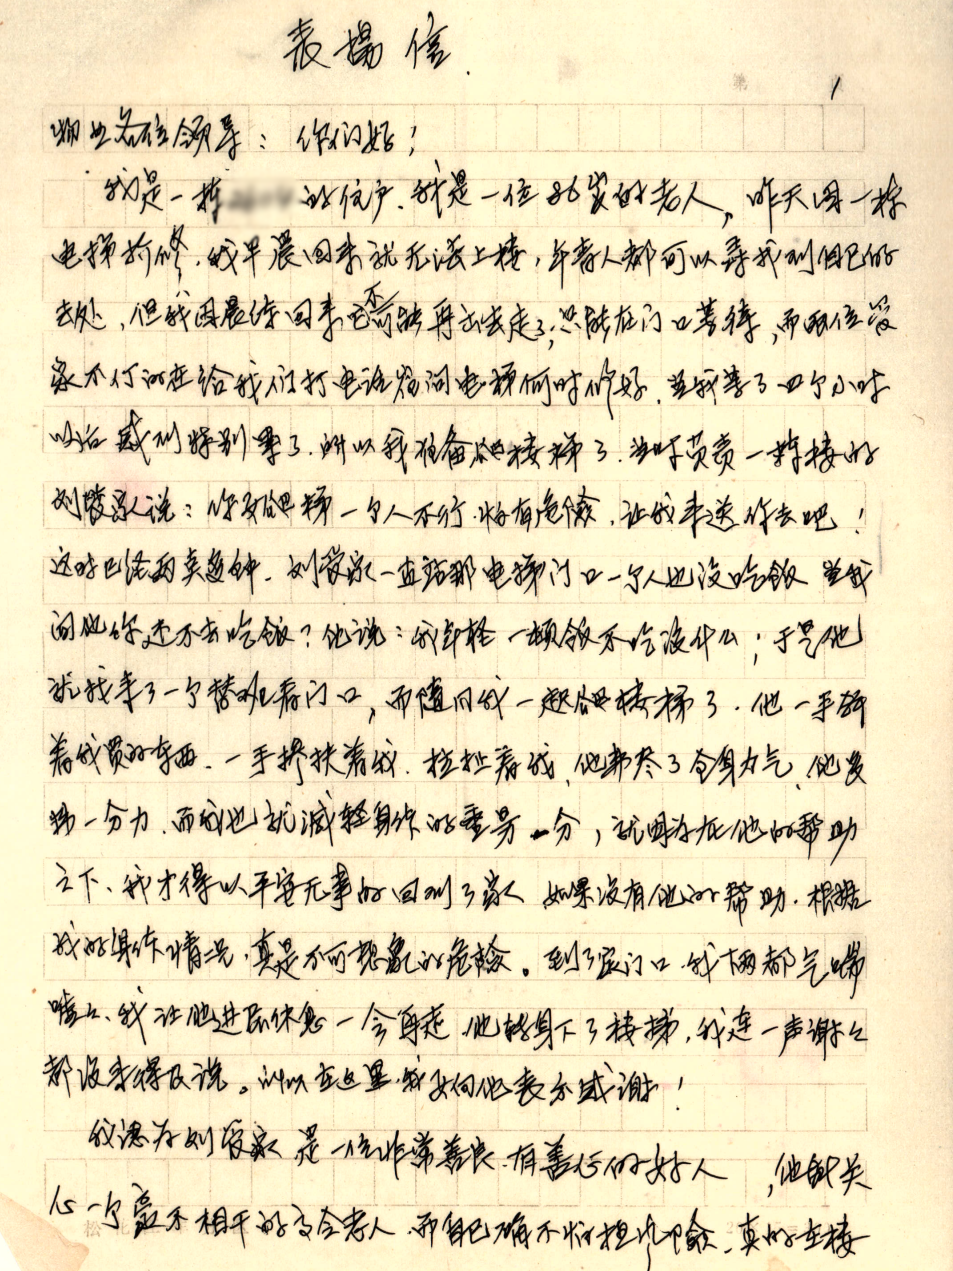 表扬信
第 1
物业各位领导：你们好！
我是一栋 的住户.我是一位86岁的老人，昨天因一栋
电梯抢修.我早晨回来就无法上楼，年青人都可以寻找到自己的
去处，但我因晨练回来已不可能再出去走了；只能在门口等待，而两位管
家不停的在给我们打电话咨询电梯何时修好.当我等了四个小时
以后感到特别累了.所以我准备爬楼梯了.当时负责一栋楼的
刘管家说：你要爬梯一个人不行.怕有危险.让我来送你去吧！
这时已经两点选钟.刘管家一直站那电梯门口一个人也没吃饭 当我
问他你还不去吃饭？他说：我年轻一顿饭不吃没什么；于是他
就找来了一个替班看门口，而随同我一起爬楼梯了.他一手拿
着我买的东西.一手搀扶着我.拉扯着我.他费尽了全身力气.他多
费一分力.而我也就减轻身体的重量一分，就因为在他的帮助
之下、我才得以平安无事的回到了家 如果没有他的帮助.根据
我的身体情况，真是不可想象的危险。到了家门口.我俩都气喘
嘘嘘、我让他进屋休息一会再走 他转身下了楼梯，我连一声谢谢
都没来得及说。所以在这里.我要向他表示感谢！
我认为刘管家是一位非常善良.有善心的好人，他能关
心一个毫不相干的 老人 而自己确不怕担风险、真的在楼
松